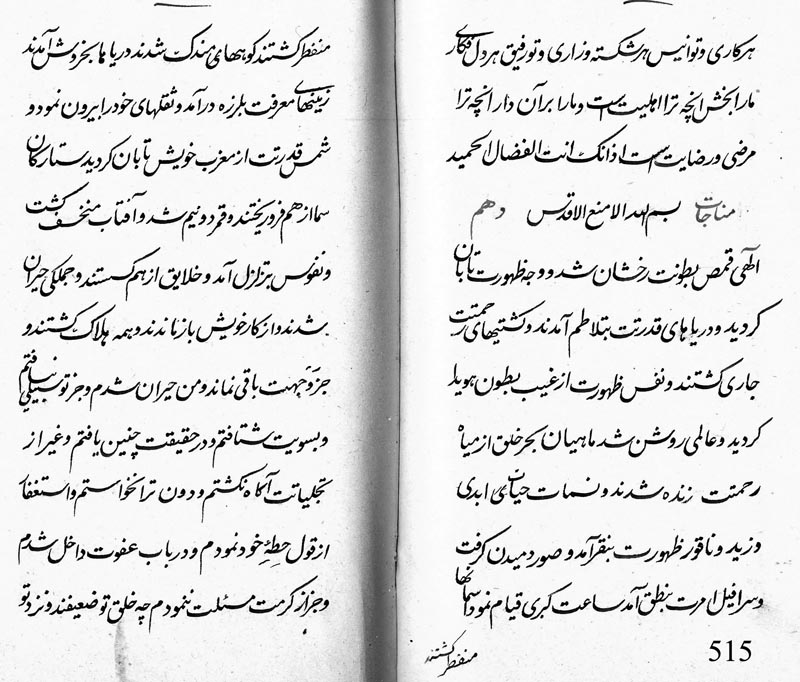 هر کاری و توانیس هر شکسته وزاری و توفیق هر دل فکاری
ما را ببخش آنچه ترا اهلیت است و ما را برآن دار آنچه ترا
مرضی و رضایت است اذ انک انت الفضال الحمید
مناجات بسم الله الامنع الاقدس دهم
الهی قمص بطونت رخشان شد و وجه ظهورت تابان
کردید و دریاهای قدرتت بتلاطم آمدند و کشتیهای رحمتت
جاری کشتند و نفس ظهورت از غیب بطون هویدا
کردید و عالمی روشن شد ماهیان بحر خلق از میاه
رحمتت زنده شدند و نسمات حیات ابدی
وزید و ناقور ظهورت بنقر آمد و صور دمیدن کرفت
و سرافیل امرت بنطق آمد ساعت کبری قیام نمود آسمانها
منفطر کشتند
515
منفطر کشتند کوههای مندک شدند دریاها بخروش آمدند
زمینهای معرفت بلرزه درآمد و ثقلهای خود را بیرون نمود و
شمس قدرتت از مغرب خویش تابان کردید ستارکان
سما از هم فرو ریختند و قمر دو نیم شد و آفتاب منخسف کشت
و نفوس بتزلزل آمد و خلایق از هم کسستند و جملکی حیران
شدند و از کار خویش باز ماندند و همه هلاک کشتند و
جز وجهت باقی نماند و من حیران شدم و جز تو سبیلی نیافتم
و بسویت شتافتم و در حقیقت چنین یافتم و غیر از
تجلیاتت آکاه نکشتم و دون ترا نخواستم و استغفار
از قول حطهٔ خود نمودم و در باب عفوت داخل شدم
و جز از کرمت مسئلت ننمودم چه خلق تو ضعیفند و نزد تو